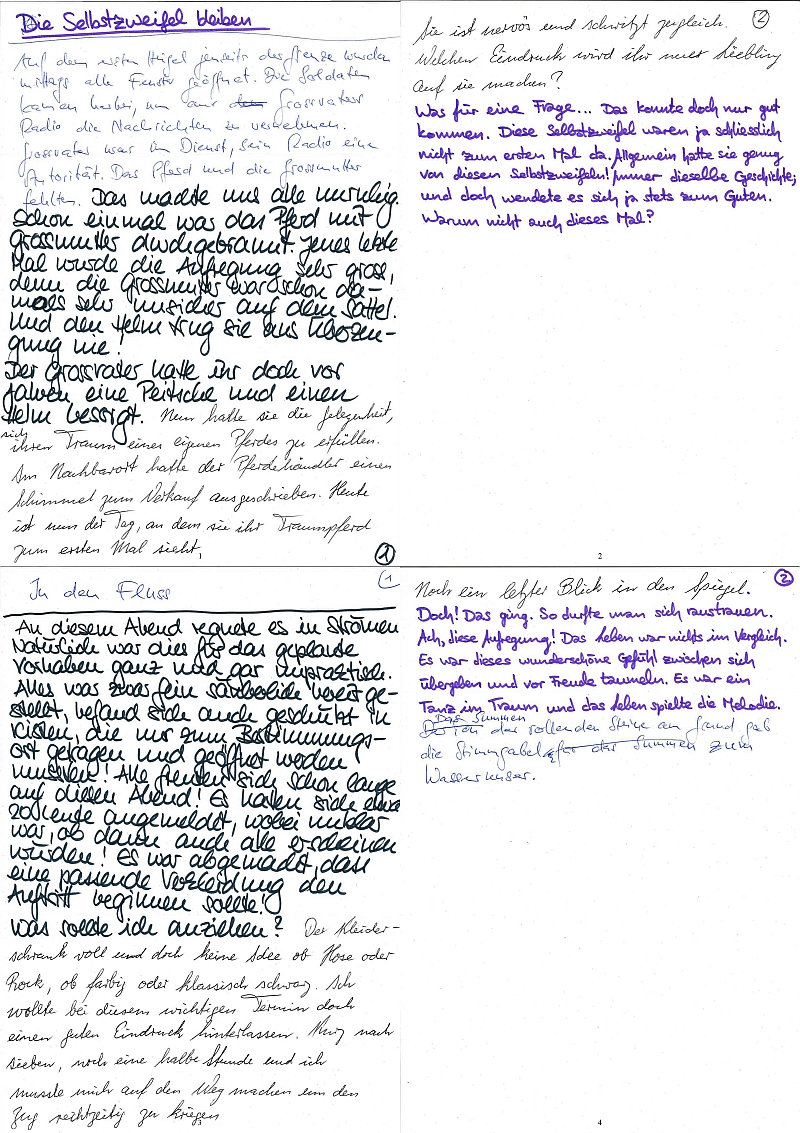 Die Selbstzweifel bleiben
Auf dem ersten Hügel jenseits der Grenze wurden
mittags alle Fenster geöffnet. Die Soldaten
kamen herbei, um aus Grossvaters
Radio die Nachrichten zu vernehmen.
Grossvater war im Dienst, sein Radio eine
Autorität. Das Pferd und die Grossmutter
fehlten. Das machte uns alle unruhig.
Schon einmal war das Pferd mit
Grossmutter durchgebrannt. Jenes letzte
Mal wurde die Aufregung sehr gross,
denn die Grossmutter war schon da-
mals sehr unsicher auf dem Sattel.
Und den Helm trug sie aus Überzeu-
gung nie!
Der Grossvater hatte ihr doch vor
Jahren eine Peitsche und einen
Helm besorgt. Nun hatte sie die Gelegenheit,
sich
ihren Traum eines eigenen Pferdes zu erfüllen.
Im Nachbarort hatte der Pferdehändler einen
Schimmel zum Verkauf ausgeschrieben. Heute
ist nun der Tag, an dem sie ihr Traumpferd
zum ersten Mal sieht,
1
2
Sie ist nervös und schwitzt zugleich.
Welchen Eindruck wird ihr neuer Liebling
auf sie machen?
Was für eine Frage... Das konnte doch nur gut
kommen. Diese Selbstzweifel waren ja schliesslich
nicht zum ersten Mal da. Allgemein hatte sie genug
von diesen Selbstzweifeln! Immer dieselbe Geschichte;
und doch wendete es sich ja stets zum Guten.
Warum nicht auch dieses Mal?
2
1
In den Fluss
An diesem Abend regnete es in Strömen
Natürlich war dies für das geplante
Vorhaben ganz und gar unpraktisch.
Alles was zwar fein säuberlich bereit ge-
stellt, befand sich auch geschützt in
Kisten, die nur zum Bestimmungs-
ort getragen und geöffnet werden
mussten! Alle freuten sich schon lange
auf diesen Abend! Es hatten sich etwa
20 Leute angemeldet, wobei unklar
war, ob davon auch alle erscheinen
würden! Es war abgemacht, dass
eine passende Verkleidung den
Auftritt beginnen sollte!
Was sollte ich anziehen? Der Kleider-
schrank voll und doch keine Idee ob Hose oder
Rock, ob farbig oder klassisch schwarz. Ich
wollte bei diesem wichtigen Termin doch
einen guten Eindruck hinterlassen. Kurz nach
sieben, noch eine halbe Stunde und ich
musste mich auf den Weg machen um den
Zug rechtzeitig zu kriegen
3
2
Noch ein letzter Blick in den Spiegel.
Doch! Das ging. So durfte man sich raustrauen.
Ach, diese Aufregung! Das Leben war nichts im Vergleich.
Es war dieses wunderschöne Gefühl zwischen sich
übergeben und vor Freude taumeln. Es war ein
Tanz im Traum und das Leben spielte die Melodie.
Das Summen
der rollenden Steine am Grund gab
die Stimmgabel für das Summen zum